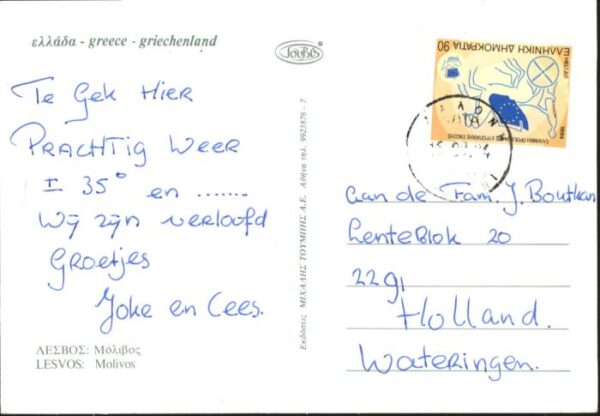 ελλάδα - greece - griechenland
Te Gek Hier
Prachtig weer
± 35° en .......
wij zijn verloofd
Groetjes
Joke en Cees.
ΛΕΣΒΟΣ: Μόλιβος
LESVOS: Molivos
Εκδόσεις ΜΙΧΑΛΗΣ ΤΟΥΜΠΗΣ Α.Ε. Αθήνα τηλ. 9923876 - 7
ΤΟΥΒΙΣ
ΕΛΛΗΝΙΚΗ ΔΗΜΟΚΡΑΤΙΑ 90
HELLAS
ΕΛΛΗΝΙΚΗ ΠΡΟΕΔΡΙΑ ΕΥΡΩΠΑΪΚΗΣ ΕΝΩΣΗΣ
1994
aan de Fam. J. Boutkan
Lenteblok 20
2291
Holland.
Wateringen.